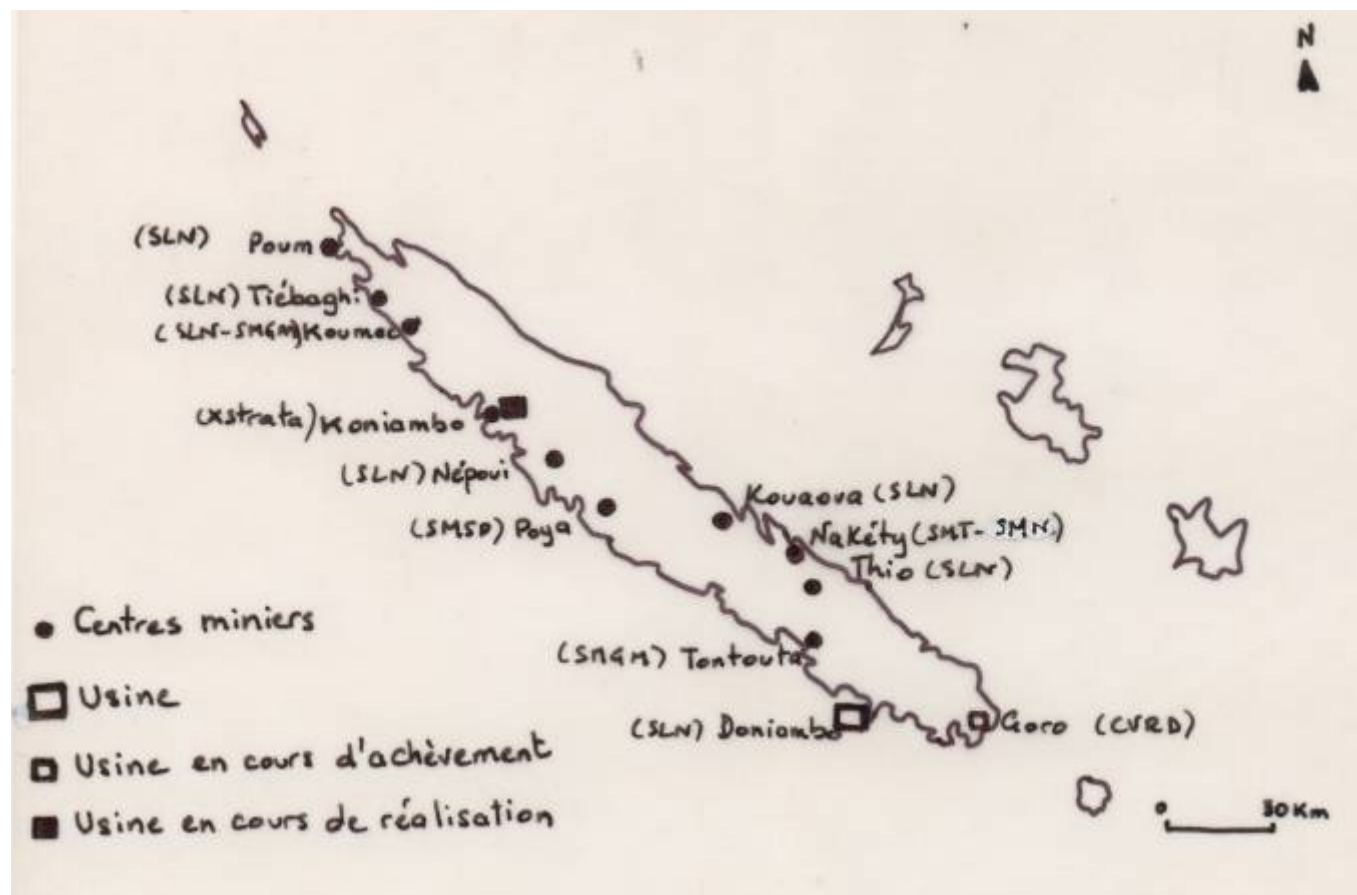 N
(SLN) Poum
(SLN) Tiébaghi
(SLN-SMGM) Koumac
(Xstrata) Koniambo
(SLN) Népoui
(SMSP) Poya
Kouaoua (SLN)
Nakéty (SMT-SMN)
Thio (SLN)
(SMGM) Tontouta
(SLN) Doniambo
Goro (CVRD)
Centres miniers
Usine
Usine en cours d'achèvement
Usine en cours de réalisation
0 50 Km